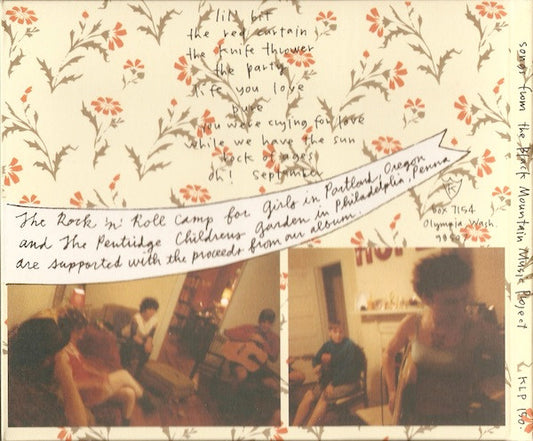 lil' bit
the red curtain
the knife thrower
the party
life you love
bute
you were crying for love
while we have the sun
rock of ages
oh! september
The Rock 'n' Roll Camp for Girls in Portland, Oregon
and The Pentridge Childrens Garden in Philadelphia, Penna
are supported with the proceeds from our album.
K
box 7154
Olympia Wash.
98507
songs from the Black Mountain Music Project
KLP 150.